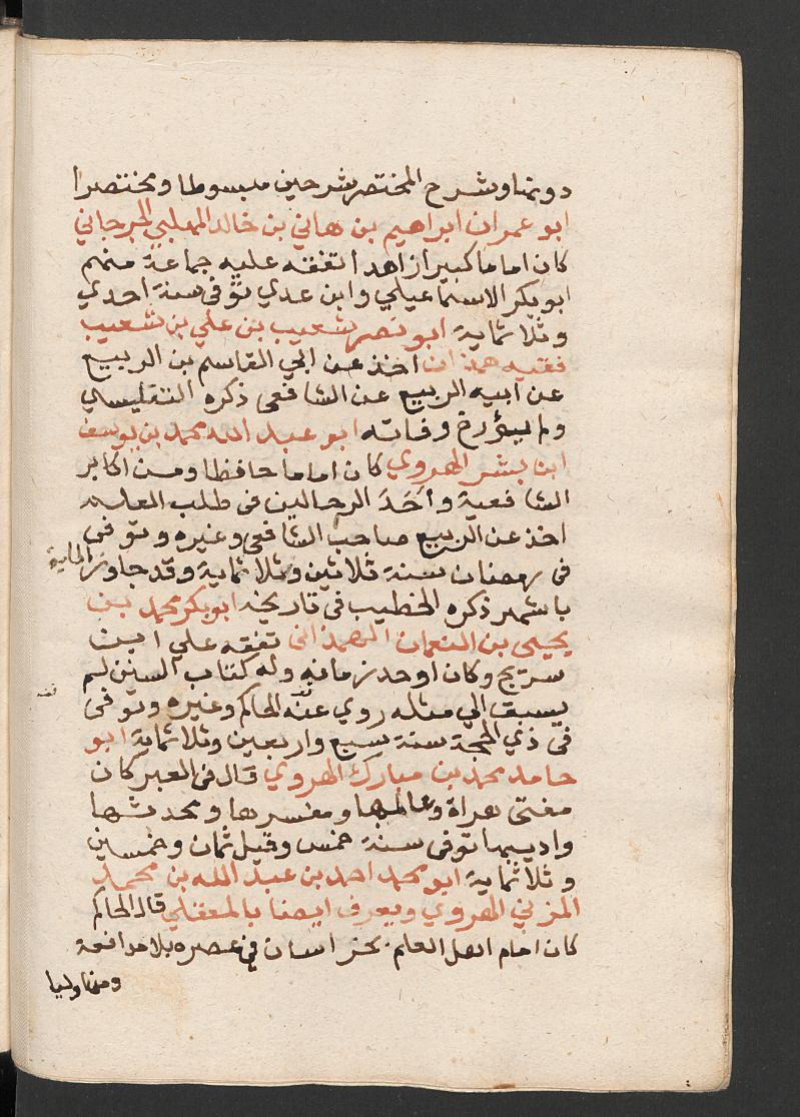 دونها وشرح المختصر شرحين مبسوطا ومختصرا
ابو عمران ابراهيم بن هاني بن خالد المهلبي الجرجاني
كان اماما كبيرا زاهدا تفقه عليه جماعة منهم
ابو بكر الاسماعيلي وابن عدي توفى سنة احدي
وثلاثماية ابو نصر شعيب بن علي بن شعيب
فقيه همذان اخذ عن ابي القاسم بن الربيع
عن ابيه الربيع عن الشافعى ذكره التفليسي
ولم يؤرخ وفاته ابو عبد الله محمد بن يوسف
ابن بشر الهروي كان اماما حافظا ومن اكابر
الشافعية وأَحَدَ الرحالين فى طلب العلم
اخذ عن الربيع صاحب الشافعى وغيره وتوفى
فى رمضان سنة ثلاثين وثلاثماية وقد جاوز الماية
باشهر ذكره الخطيب فى تاريخه ابو بكر محمد بن
يحيى بن النعمان الهمذانى تفقه علي ابن
سريج وكان اوحد زمانه وله كتاب السنن لم
يسبق الي مثله روي عنه الحاكم وغيره وتوفى
فى ذي الحجة سنة سبع واربعين وثلاثماية ابو
حامد محمد بن مبارك الهروي قال فى العبر كان
مفتى هراة وعالمها ومفسرها ومحدثها
واديبها توفى سنة خمس وقيل ثمان وخمسين
وثلاثماية ابو محمد احمد بن عبد الله بن محمد
المزني الهروي ويعرف ايضا بالمعقلي قال الحاكم
كان امام اهل العلم بخراسان فى عصره بلا مدافعة